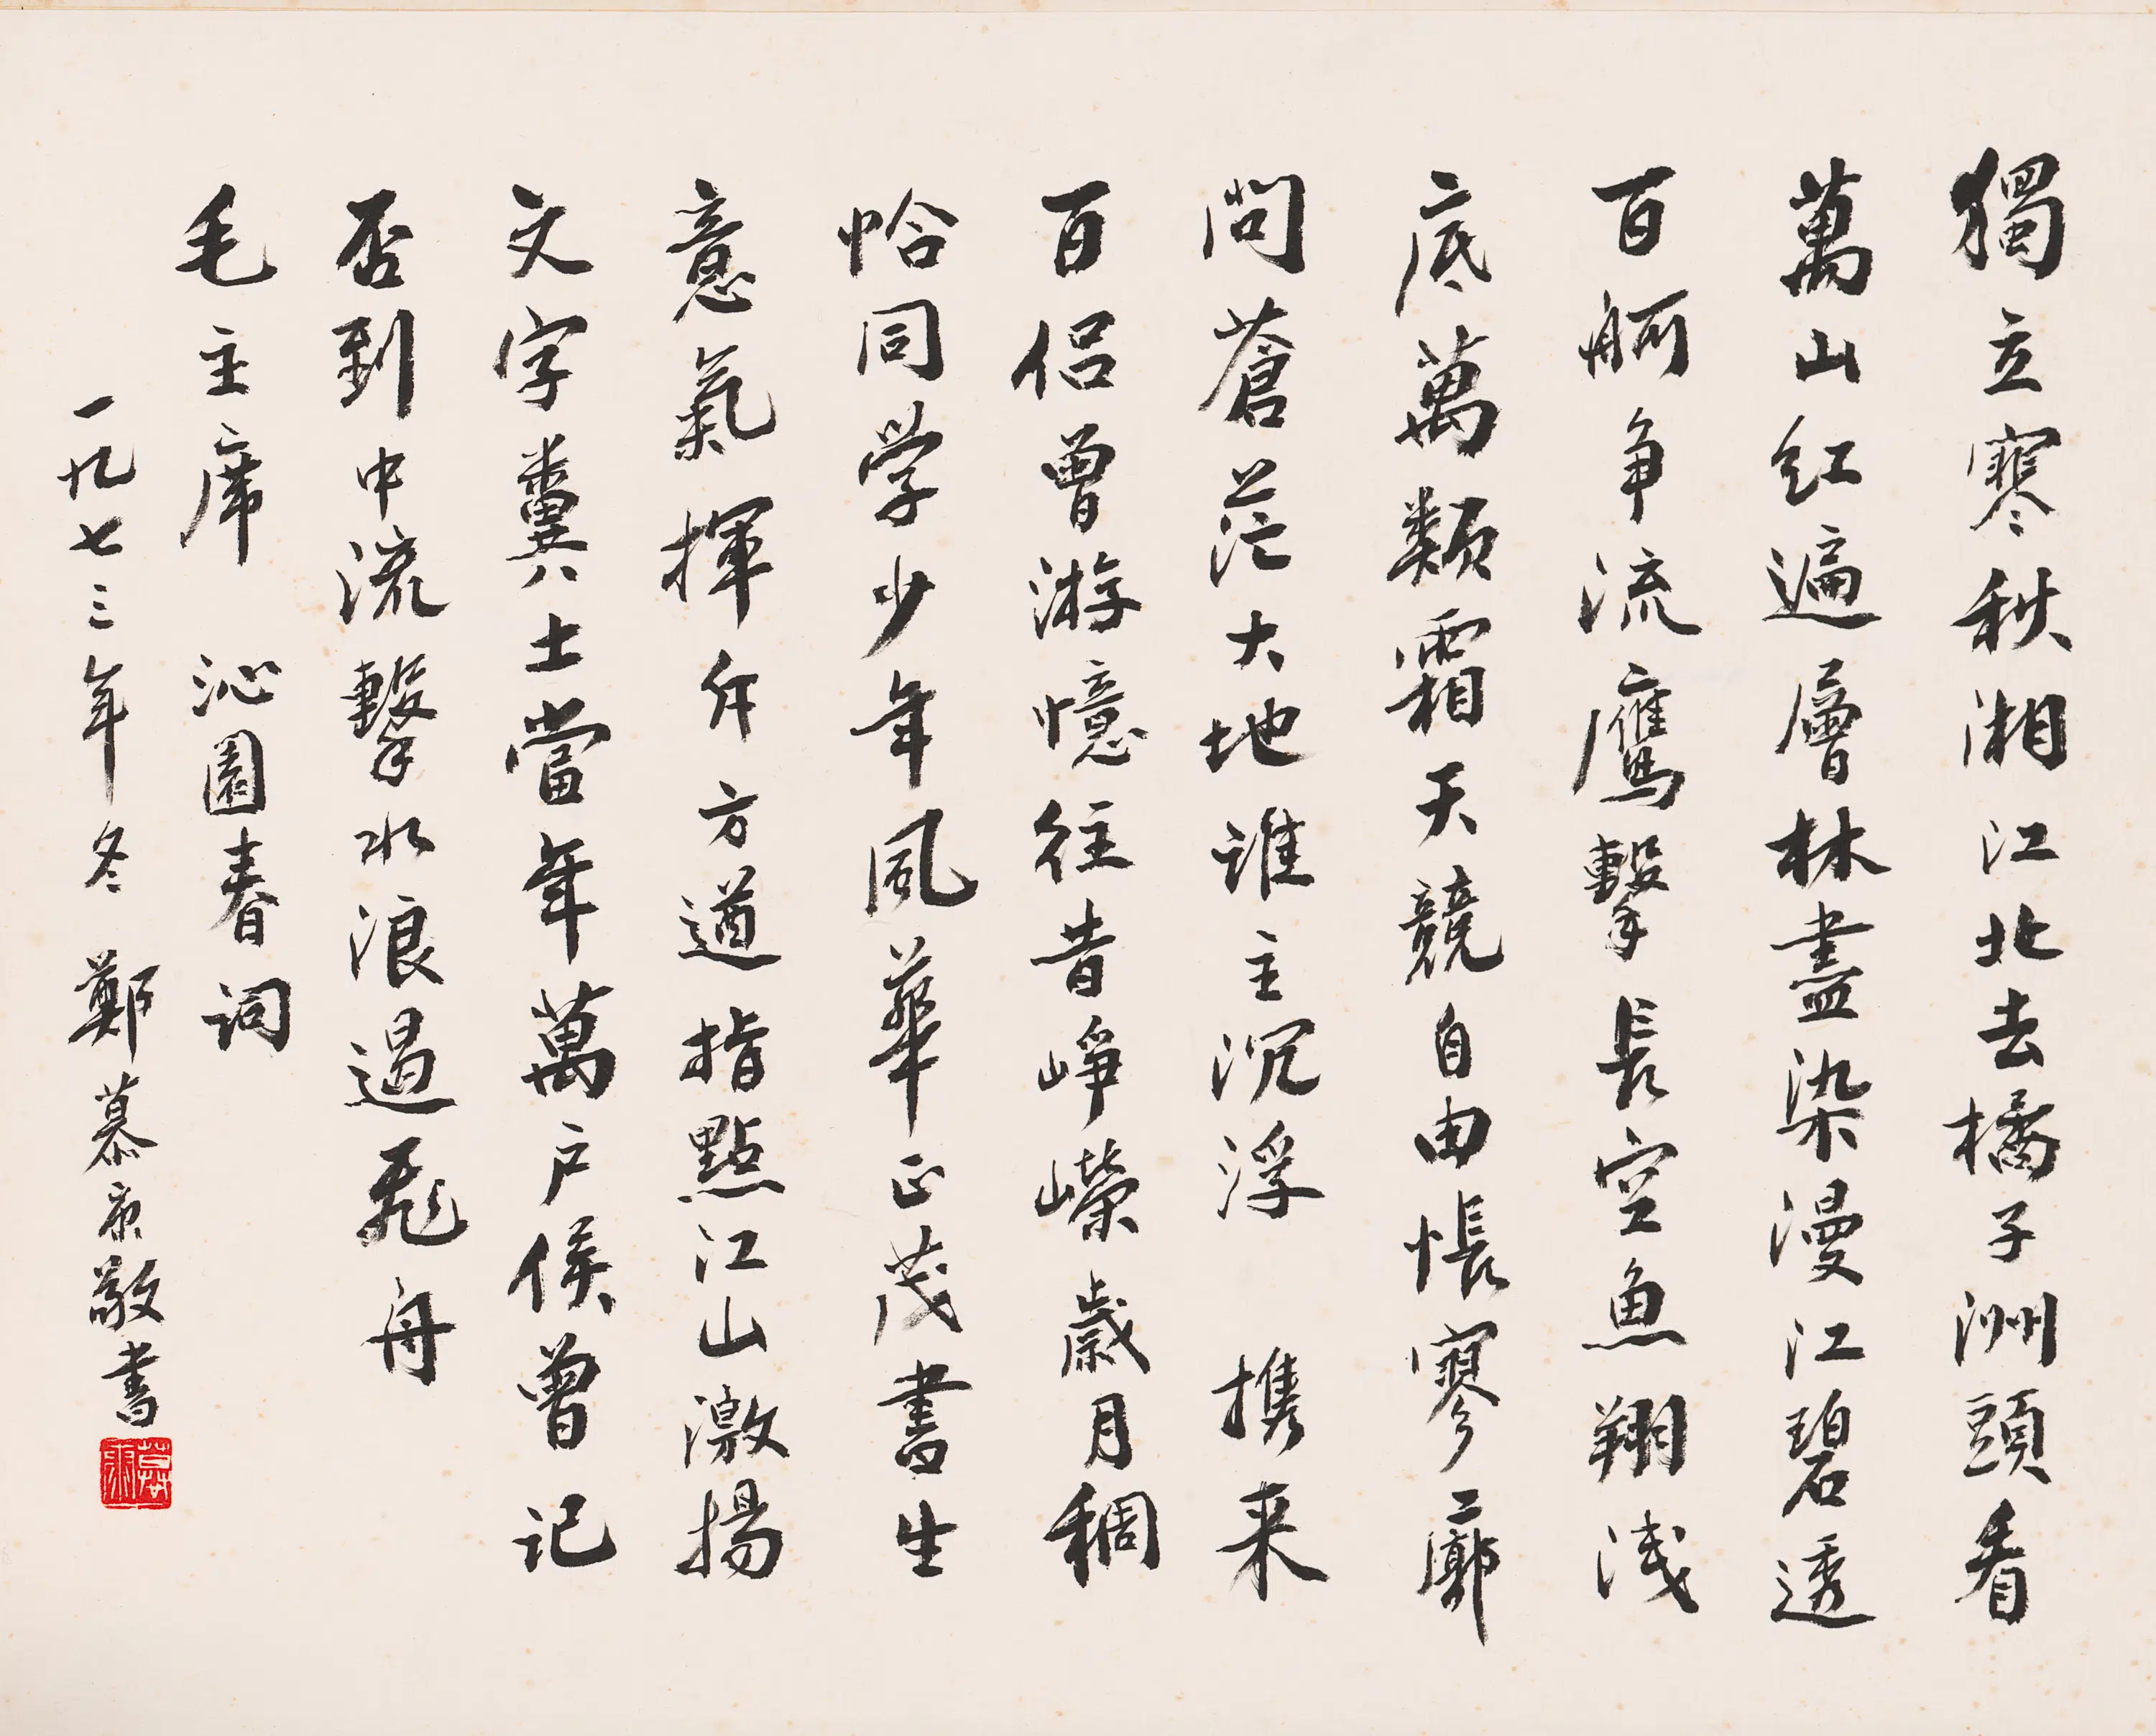 獨立寒秋湘江北去橘子洲頭看
萬山紅遍層林盡染漫江碧透
百舸争流鷹擊長空魚翔浅
底萬類霜天競自由悵寥廓
問蒼茫大地誰主沉浮 携来
百侣曾游憶往昔崢嶸歲月稠
恰同学少年風華正茂書生
意氣揮斥方遒指點江山激揚
文字糞土當年萬户侯曾记
否到中流擊水浪遏飛舟
毛主席 沁園春詞
一九七三年冬 鄭慕康敬書
慕康